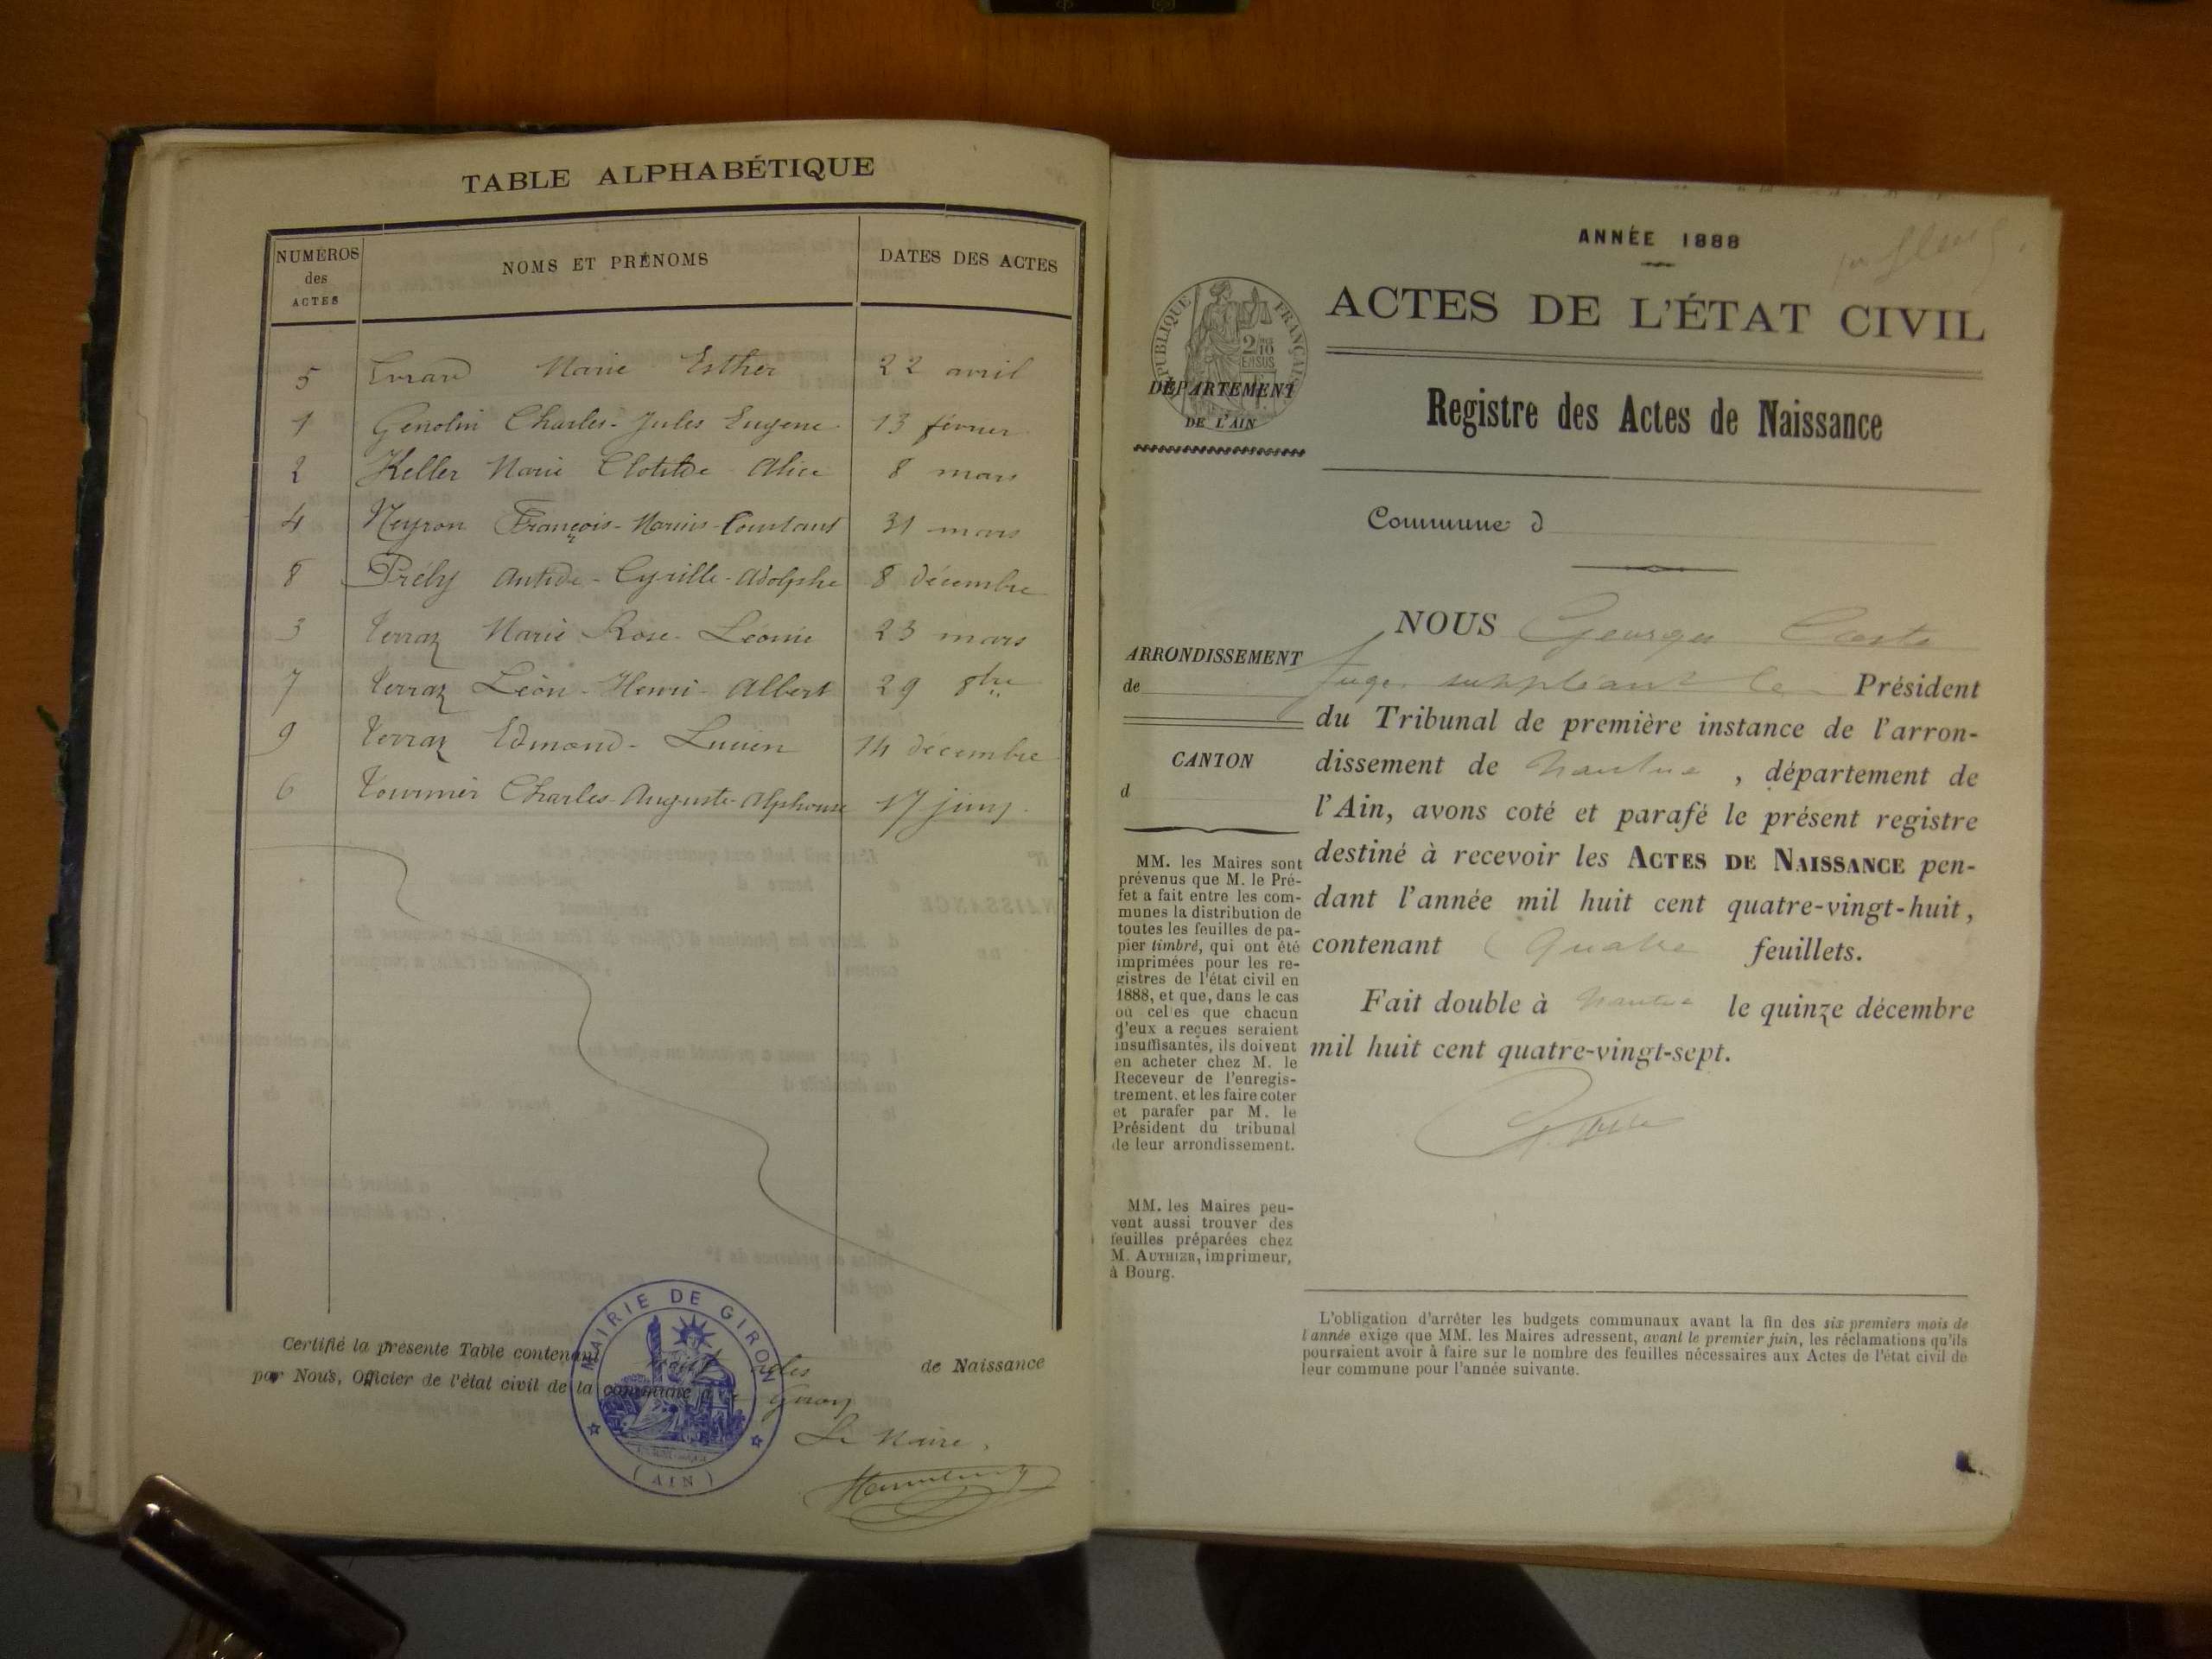 TABLE ALPHABÉTIQUE
NUMÉROS des ACTES NOMS ET PRÉNOMS DATES DES ACTES
5 Evrard Marie Esther 22 avril
1 Genolin Charles-Jules Eugene 13 février
2 Keller Marie Clotilde Alice 8 mars
4 Neyron François-Marius-Constant 31 mars
8 Prély Antide-Cyrille-Adolphe 8 décembre
3 Verraz Marie Rose-Léonie 23 mars
7 Verraz Léon-Henri-Albert 29 8bre
9 Verraz Edmond-Lucien 14 décembre
6 Tournier Charles-Auguste-Alphonse 17 juin
Certifié la présente Table contenant actes de Naissance
par Nous, Officier de l'état civil de la commune d Giron
Le Maire,
MAIRIE DE GIRON
(AIN)
ANNÉE 1888
ACTES DE L'ÉTAT CIVIL
RÉPUBLIQUE FRANÇAISE
DÉPARTEMENT
DE L'AIN
Registre des Actes de Naissance
Commune d
ARRONDISSEMENT
de
CANTON
d
MM. les Maires sont
prévenus que M. le Pré-
fet a fait entre les com-
munes la distribution de
toutes les feuilles de pa-
pier timbré, qui ont été
imprimées pour les re-
gistres de l'état civil en
1888, et que, dans le cas
où celles que chacun
d'eux a reçues seraient
insuffisantes, ils doivent
en acheter chez M. le
Receveur de l'enregis-
trement, et les faire coter
et parafer par M. le
Président du tribunal
de leur arrondissement.
MM. les Maires peu-
vent aussi trouver des
feuilles préparées chez
M. AUTHIER, imprimeur,
à Bourg.
NOUS Georges
Juge suppléant le Président
du Tribunal de première instance de l'arron-
dissement de Nantua, département de
l'Ain, avons coté et parafé le présent registre
destiné à recevoir les ACTES DE NAISSANCE pen-
dant l'année mil huit cent quatre-vingt-huit,
contenant Quatre feuillets.
Fait double à Nantua le quinze décembre
mil huit cent quatre-vingt-sept.
L'obligation d'arrêter les budgets communaux avant la fin des six premiers mois de
l'année exige que MM. les Maires adressent, avant le premier juin, les réclamations qu'ils
pourraient avoir à faire sur le nombre des feuilles nécessaires aux Actes de l'état civil de
leur commune pour l'année suivante.